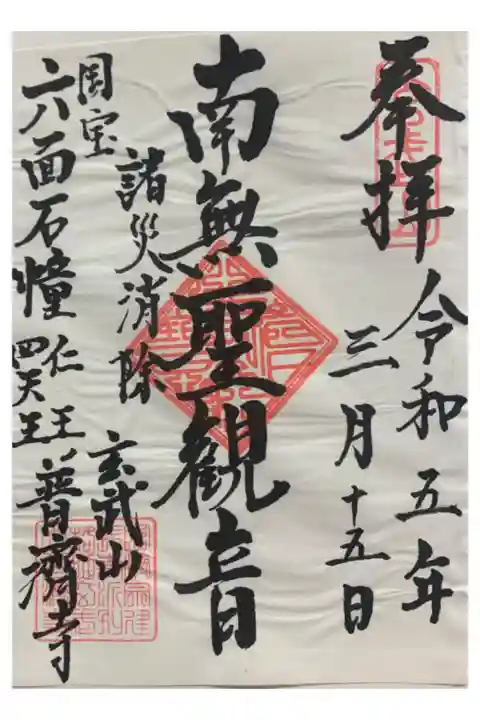 奉拝
令和五年
三月十五日
南無聖観音
諸災消除
玄武山
国宝
六面石幢
仁王
四天王
普濟寺